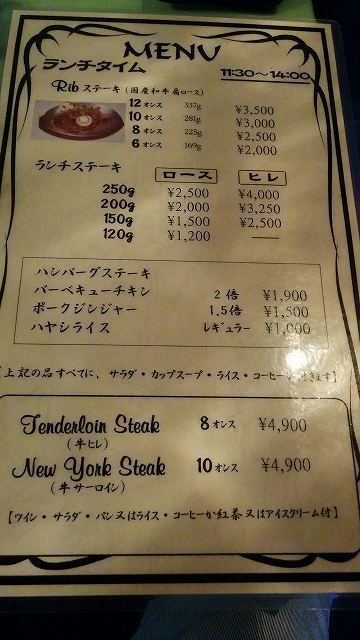 MENU
ランチタイム 11:30〜14:00
Rib ステーキ (国産和牛肩ロース)
12 オンス 337g ¥3,500
10 オンス 281g ¥3,000
8 オンス 225g ¥2,500
6 オンス 169g ¥2,000
ランチステーキ ロース ヒレ
250g ¥2,500 ¥4,000
200g ¥2,000 ¥3,250
150g ¥1,500 ¥2,500
120g ¥1,200 ——
ハンバーグステーキ
バーベキューチキン 2 倍 ¥1,900
ポークジンジャー 1.5倍 ¥1,500
ハヤシライス レギュラー ¥1,000
【上記の品すべてに、サラダ・カップスープ・ライス・コーヒーが付きます】
Tenderloin Steak 8 オンス ¥4,900
(牛ヒレ)
New York Steak 10 オンス ¥4,900
(牛サーロイン)
【ワイン・サラダ・パン又はライス・コーヒーか紅茶又はアイスクリーム付】